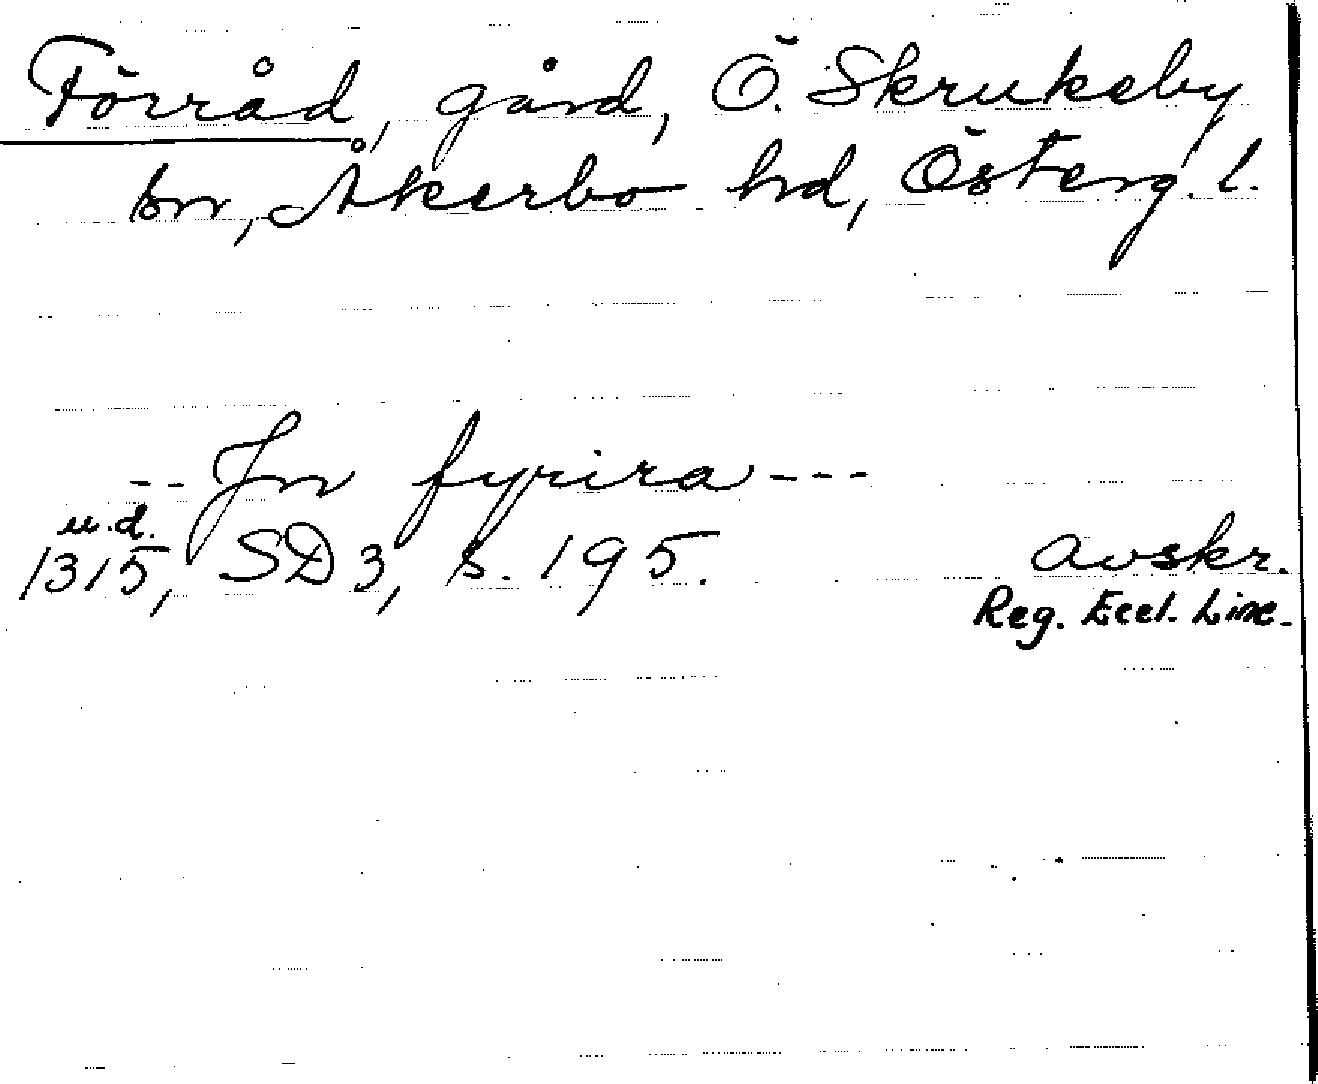 Förråd, gård, Ö. Skrukeby
sn, Åkerbo hd, Österg. l.
-- Jn fyrira ---
u.d.
1315, SD 3, s. 195. avskr.
Reg. Eccl. Linc.